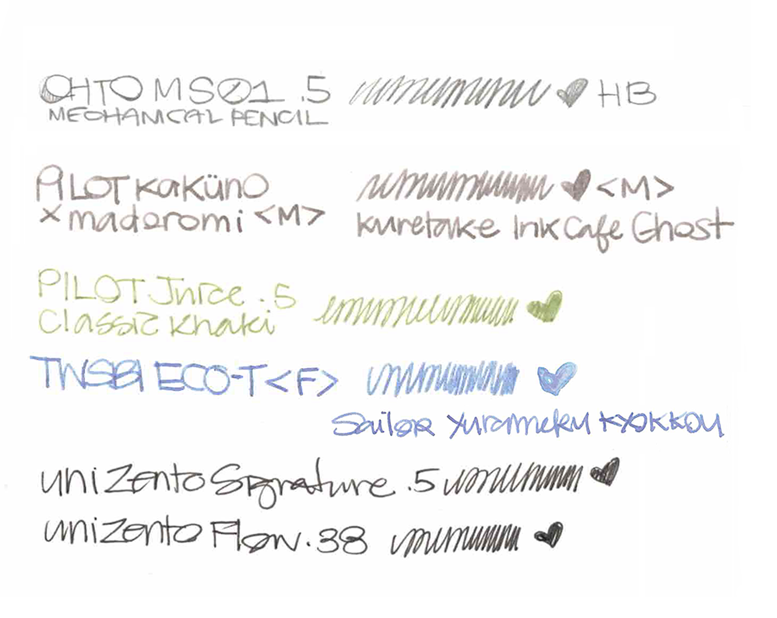 OHTO MS01 .5 ♥ HB
MECHANICAL PENCIL
PILOT Kaküno ♥ <M>
×madoromi <M> Kuretake Ink Cafe Ghost
PILOT Juice .5 ♥
Classic Khaki
TWSBI ECO-T <F> ♥
Sailor Yurameku KYOKKOU
uni Zento Signature .5 ♥
uni Zento Flow .38 ♥